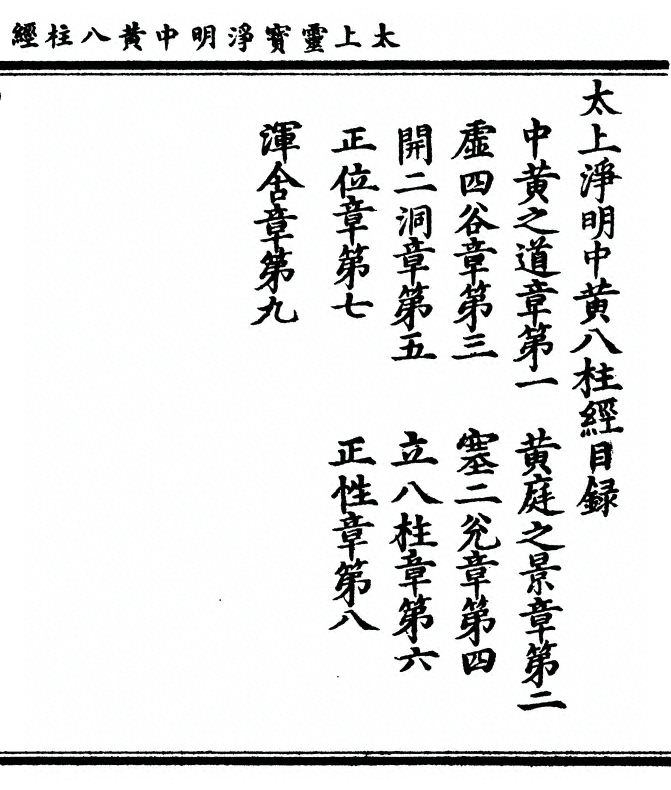 太上靈寶淨明中黃八柱經
太上淨明中黃八柱經目録
中黃之道章第一
黃庭之景章第二
虛四谷章第三
塞二兊章第四
開二洞章第五
立八柱章第六
正位章第七
正性章第八
渾舍章第九